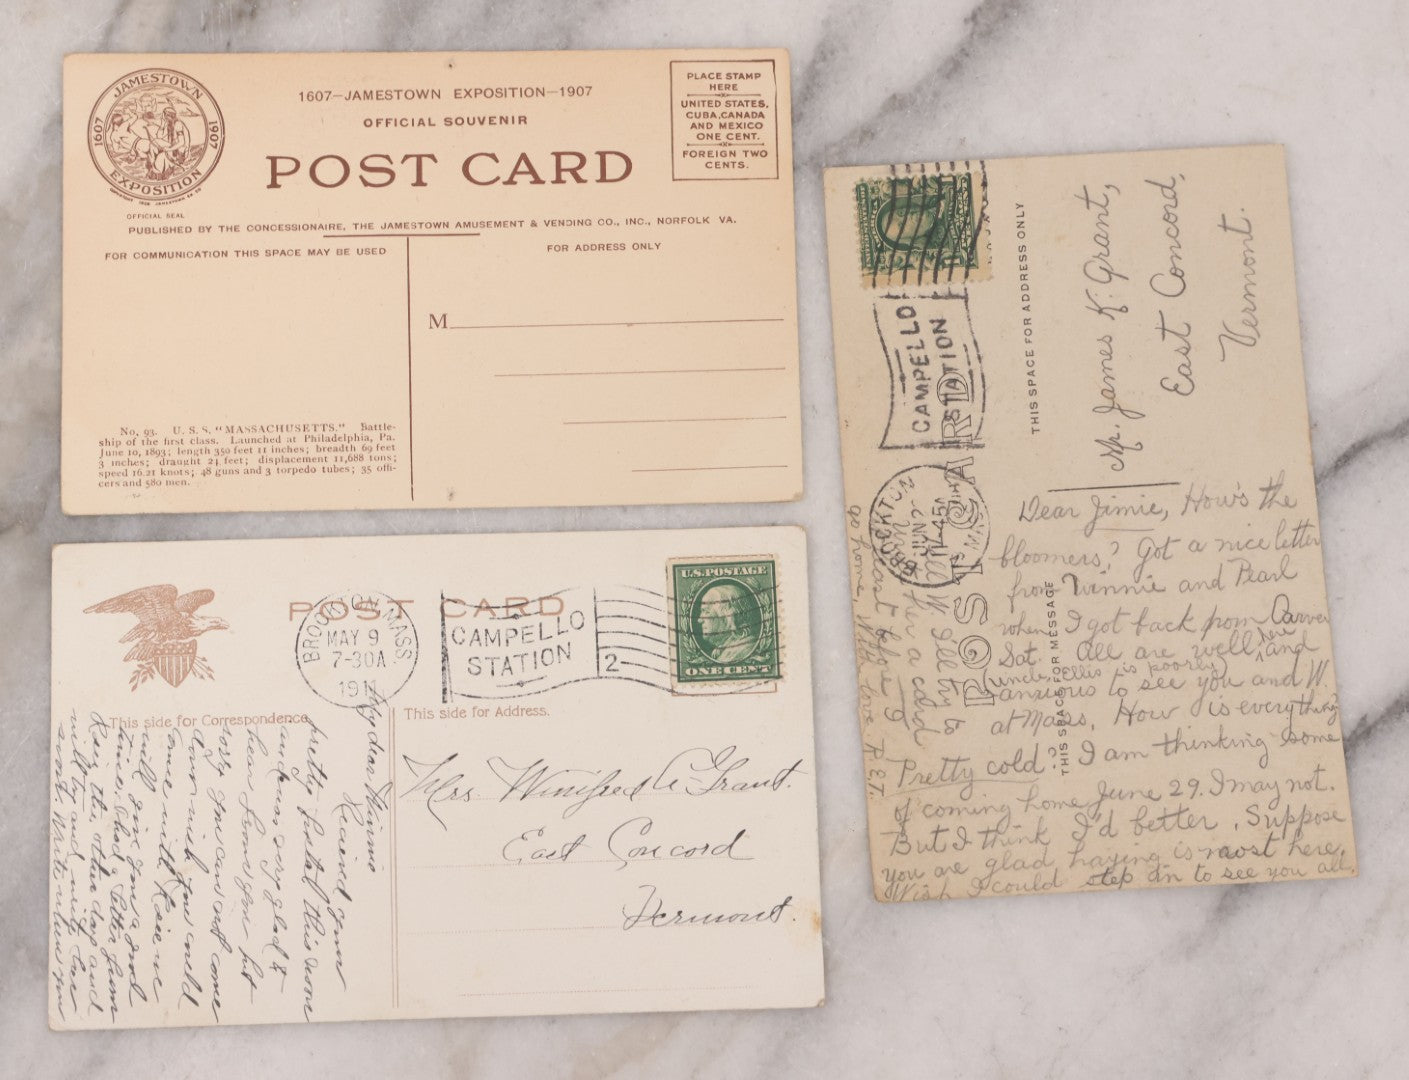 JAMESTOWN
1607 1907
EXPOSITION
OFFICIAL SEAL
1607—JAMESTOWN EXPOSITION—1907
OFFICIAL SOUVENIR
POST CARD
PLACE STAMP
HERE
UNITED STATES,
CUBA, CANADA
AND MEXICO
ONE CENT.
FOREIGN TWO
CENTS.
PUBLISHED BY THE CONCESSIONAIRE, THE JAMESTOWN AMUSEMENT & VENDING CO., INC., NORFOLK VA.
FOR COMMUNICATION THIS SPACE MAY BE USED
FOR ADDRESS ONLY
M
No. 93. U. S. S. "MASSACHUSETTS." Battle-
ship of the first class. Launched at Philadelphia, Pa.
June 10, 1893; length 350 feet 11 inches; breadth 69 feet
3 inches; draught 24 feet; displacement 11,688 tons;
speed 16.21 knots; 48 guns and 3 torpedo tubes; 35 offi-
cers and 580 men.
POST CARD
BROCKTON, MASS.
MAY 9
7-30A
191
CAMPELLO
STATION
2
U.S. POSTAGE
ONE CENT
This side for Correspondence
This side for Address.
Mrs. Winifred A Grant.
East Concord
Vermont.
My dear Winnie
Received your
pretty postal this noon
and was very glad to
hear from you but
sorry you can not come
down wish you could
come with Rosie we
will give you a good
time. Had a letter from
Rosy the other day and
POST CARD
CAMPELLO
STATION
BROCKTON
JUN 2
11-45A
MASS.
THIS SPACE FOR ADDRESS ONLY
Mr. James K. Grant,
East Concord,
Vermont.
THIS SPACE FOR MESSAGE
Dear Jimie, How's the
bloomers? Got a nice letter
from Winnie and Pearl
when I got back from Carver
Sat. All are well and
Uncle Ellis is poorly
anxious to see you and W.
at Mass, How is everything
Pretty cold? I am thinking some
of coming home June 29. I may not.
But I think I'd better. Suppose
you are glad haying is most here.
Wish I could step in to see you all.
Tell W. I'll try to
a card
before I
go home, With love. R.E.T.